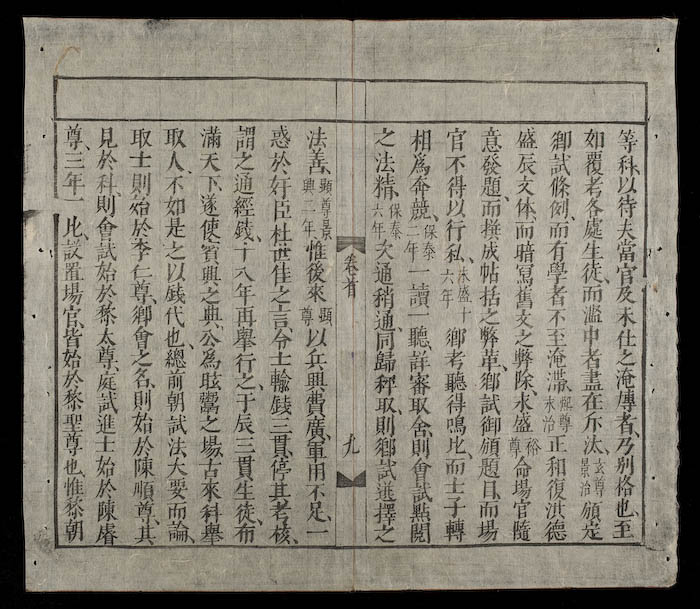 等科以待夫當官及未仕之淹傳者乃別格也至
如覆考各處生徒而濫中者盡在斥汰玄尊景治頒定
鄉試條例而有學者不至淹滯熙尊永治正和復洪德
盛辰文体而暗寫舊文之弊除永盛裕尊命場官隨
意發題而撰成帖括之弊革鄉試御頒題目而場
官不得以行私永盛十六年鄉考聽得鳴比而士子轉
相為奔競保泰二年一讀一聽詳審取舍則會試點閱
之法精保泰六年大通稍通同歸秤取則鄉試選擇之
卷首
九
法善顯尊景興二年惟後來顯尊以兵興費廣軍用不足一
惑於奸臣杜世佳之言令士輸錢三貫停其考核
謂之通經錢十八年再舉行之于辰三貫生徒布
滿天下遂使賓興之典公為眩鬻之場古來科舉
取人不如是之以錢代也總前朝試法大要而論
取士則始於李仁尊鄉會之名則始於陳順尊其
見於科則會試始於黎太尊庭試進士始於陳睿
尊三年一比設置場官皆始於黎聖尊也惟黎朝